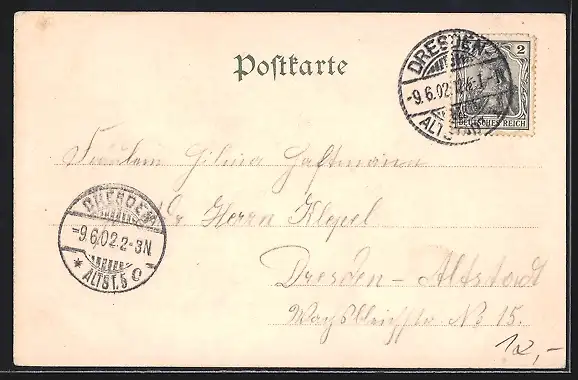 Postkarte
DRESDEN
-9.6.02.
ALTSTADT
2
DEUTSCHES REICH
Fräulein Helina Haftmann
Herrn Klepel
DRESDEN
-9.6.02.2-3N
* ALTST.5
Dresden-Altstadt
No 15.
12,-